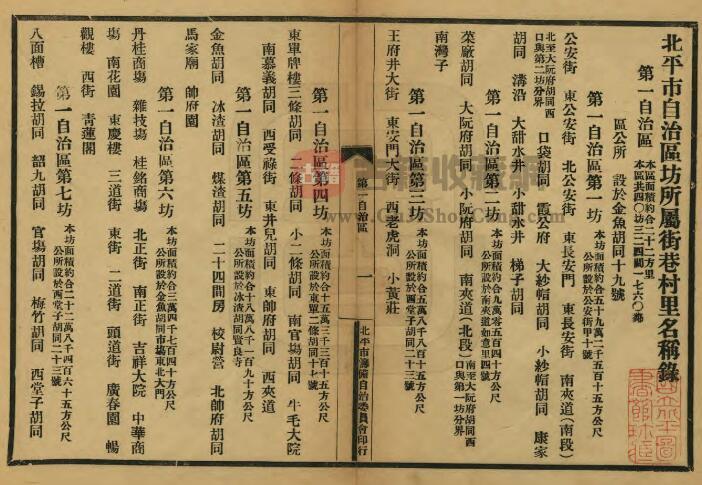 北平市自治區坊所屬街巷村里名稱錄
第一自治區 本區面積約合二十二方里
本區共四〇坊三二四閭一七六〇鄰
區公所 設於金魚胡同十九號
第一自治區第一坊 本坊面積約合五十九萬二千五百十方公尺
公所設於公安街甲十號
公安街 東公安街 北公安街 東長安門 東長安街 南夾道(南段)
北至大阮府胡同西
口與第二坊分界 口袋胡同 霞公府 大紗帽胡同 小紗帽胡同 康家
胡同 溝沿 大甜水井 小甜水井 梯子胡同
第一自治區第二坊 本坊面積約合九萬零五百四十方公尺
公所設於南夾道如意里四號
菜廠胡同 大阮府胡同 小阮府胡同 南夾道(北段)南至大阮府胡同西
口與第一坊分界
南灣子
第一自治區第三坊 本坊面積約合九萬八千八百五十方公尺
公所設於西堂子胡同二十三號
王府井大街 東安門大街 西老虎洞 小黃莊
第一自治區
一
北平市籌備自治委員會印行
第一自治區第四坊 本坊面積約合十五萬三千三百五十方公尺
公所設於東單二條胡同十七號
東單牌樓三條胡同 二條胡同 小二條胡同 南官場胡同 牛毛大院
南慕義胡同 西受祿街 東井兒胡同 東帥府胡同 西夾道
第一自治區第五坊 本坊面積約合十八萬八千一百九十方公尺
公所設於冰渣胡同賢良寺
金魚胡同 冰渣胡同 煤渣胡同 二十四間房 校尉營 北帥府胡同
馬家廟 帥府園
第一自治區第六坊 本坊面積約合三萬四千七百四十方公尺
公所設於金魚胡同市場東北大門
丹桂商場 雜技場 桂銘商場 北正街 南正街 吉祥大院 中華商
場 南花園 東慶樓 三道街 東街 二道街 頭道街 廣春園 暢
觀樓 西街 青蓮閣
第一自治區第七坊 本坊面積約合二十二萬八千四百六十五方公尺
公所設於西堂子胡同二十三號
八面槽 錫拉胡同 韶九胡同 官場胡同 梅竹胡同 西堂子胡同